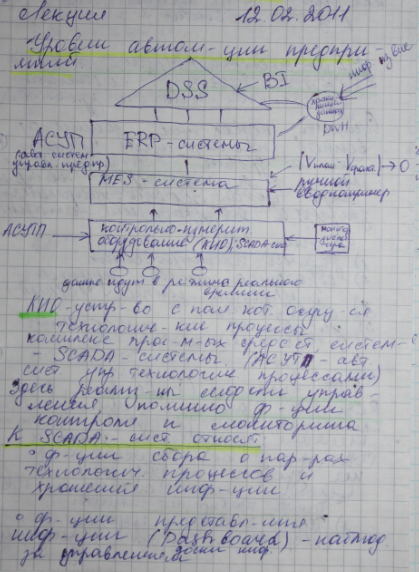 Лекция 12.02.2011
Уровни автом-ции предпри-
ятий
DSS
BI
инф извне
DWH
АСУП
(авт. систем управл. предпр)
ERP-системы
MES-система
(Vплан - Vфакт) → 0
ручной ввод например
АСУТП
контрольно-измерит.
оборудование (КИО), SCADA-сист
данные идут в режиме реального
времени
КИО-устр-во с пом кот осущ-ся
технологич-кие процессы
комплекс прог-м-ых средств систем-
- SCADA-системы (АСУТП - авт
сист упр технологич процессами)
Здесь реализ-ны
управ-
ления помимо ф-ции
контроля и мониторинга
К SCADA-сист относят
° ф-ции сбора о пар-рах
технологич. процессов и
хранения инф-ции
° ф-ции представл-ния
инф-ции (Dashboard) - наблюд
за управлением доски инф.